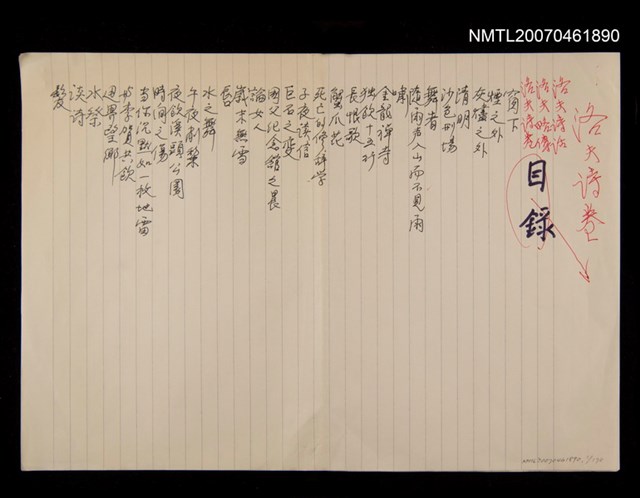 NMTL20070461890
洛夫詩卷
洛夫詩話
洛夫
洛夫詩卷
目錄
窗下
煙之外
灰燼之外
清明
沙包刑場
舞者
隨雨聲入山而不見雨
嘯
金龍禪寺
獨飲十五行
長恨歌
蟹爪花
死亡的修辭學
子夜讀信
巨石之變
國父紀念館之晨
論女人
歲末無雪
唇
水之舞
午夜削梨
夜飲溪頭公園
時間之傷
當你沉默如一枚地雷
與李賀共飲
邊界望鄉
水祭
談詩
髮